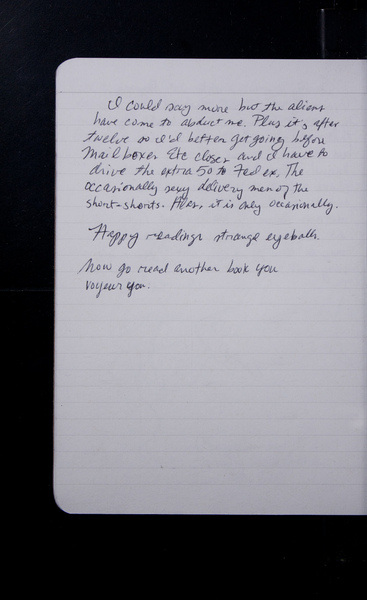 I could say more but the aliens
have come to abduct me. Plus it's after
twelve so I'd better get going before
Mail boxes Etc closes and I have to
drive the extra 50 to Fed ex. The
occasionally sexy delivery men of the
short-shorts. Alas, it is only occasionally.
Happy readings strange eyeballs.
Now go read another book you
voyeur you.